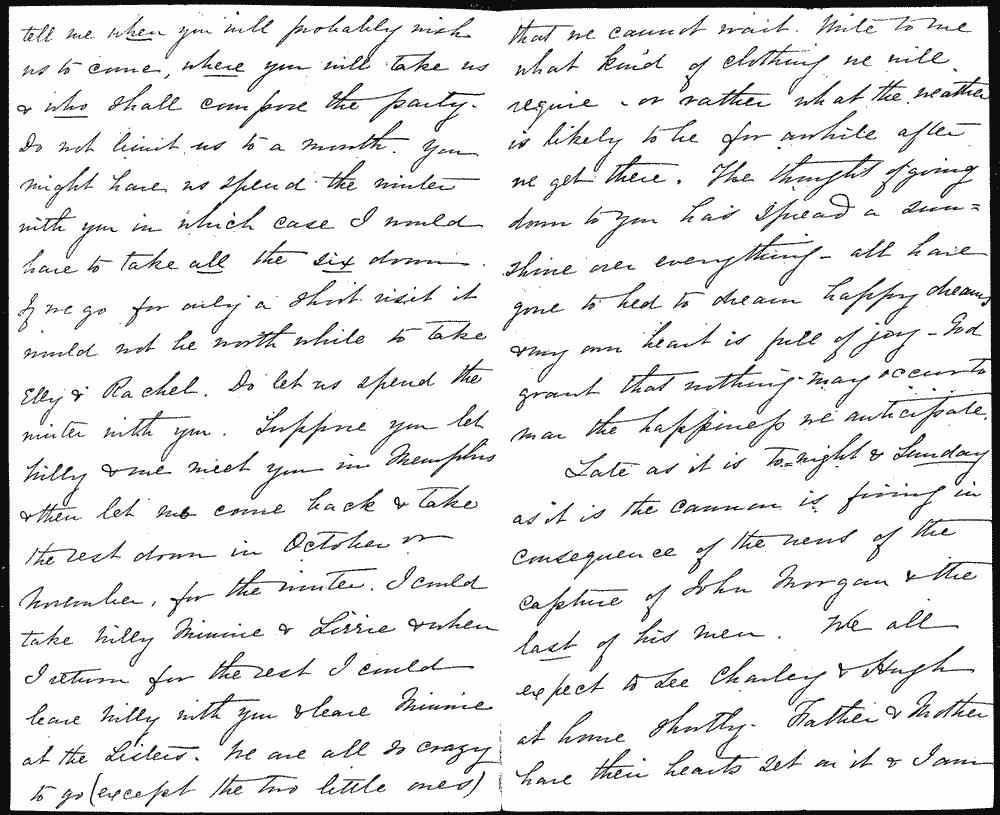 tell me when you will probably wish
us to come, where you will take us
& who shall compose the party.
Do not limit us to a month. You
might have us spend the winter
with you in which case I would
have to take all the six down.
If we go for only a short visit it
would not be worth while to take
Elly & Rachel. Do let us spend the
winter with you. Suppose you let
Willy & me meet you in Memphis
& then let me come back & take
the rest down in October or
November, for the winter. I could
take Willy Minnie & Lizzie & when
I return for the rest I could
leave Willy with you & leave Minnie
at the Sisters. We are all so crazy
to go (except the two little ones)
that we cannot wait. Write to me
what kind of clothing we will
require - or rather what the weather
is likely to be for awhile after
we get there. The thought of going
down to you has spread a sun=
shine over everything - all have
gone to bed to dream happy dreams
& my own heart is full of joy - God
grant that nothing may occur to
mar the happiness we anticipate.
Late as it is to=night & Sunday
as it is the cannon is firing in
consequence of the news of the
capture of John Morgan & the
last of his men. We all
expect to see Charley & Hugh
at home shortly. Father & Mother
have their hearts set on it & I am